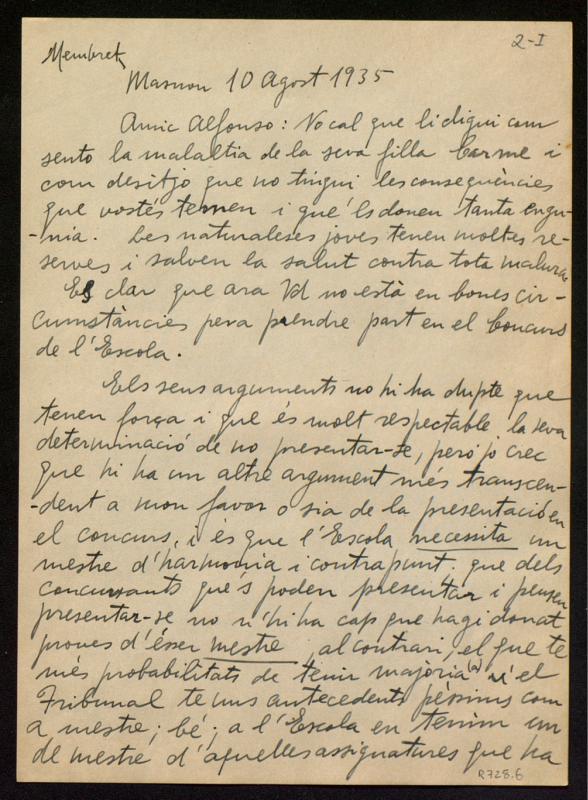 2-I
Membret
Masnou 10 Agost 1935
Amic Alfonso: No cal que li digui com
sento la malaltia de la seva filla Carme i
com desitjo que no tingui les conseqüències
que vostés temen i que 'ls donen tanta engu-
-nia. Les naturaleses joves tenen moltes re-
serves i salven la salut contra tota malura
Es clar que ara Vd no està en bones cir-
cumstàncies pera pendre part en el Concurs
de l'Escola.
Els seus arguments no hi ha dupte que
tenen força i que és molt respectable la seva
determinació de no presentar-se, però jo crec
que hi ha un altre argument més transcen-
-dent a mon favor o sia de la presentació en
el concurs, i és que l'Escola necessita un
mestre d'harmonia i contrapunt. que dels
concursants que's poden presentar i pensen
presentar-se no n'hi ha cap que hagi donat
proves d'ésser mestre, al contrari, el que te
més probabilitats de tenir majoria (a) el
Tribunal te uns antecedents pèssims com
a mestre; bé; a l'Escola en tenim un
de mestre d'aquelles assignatures que ha
R.728.6